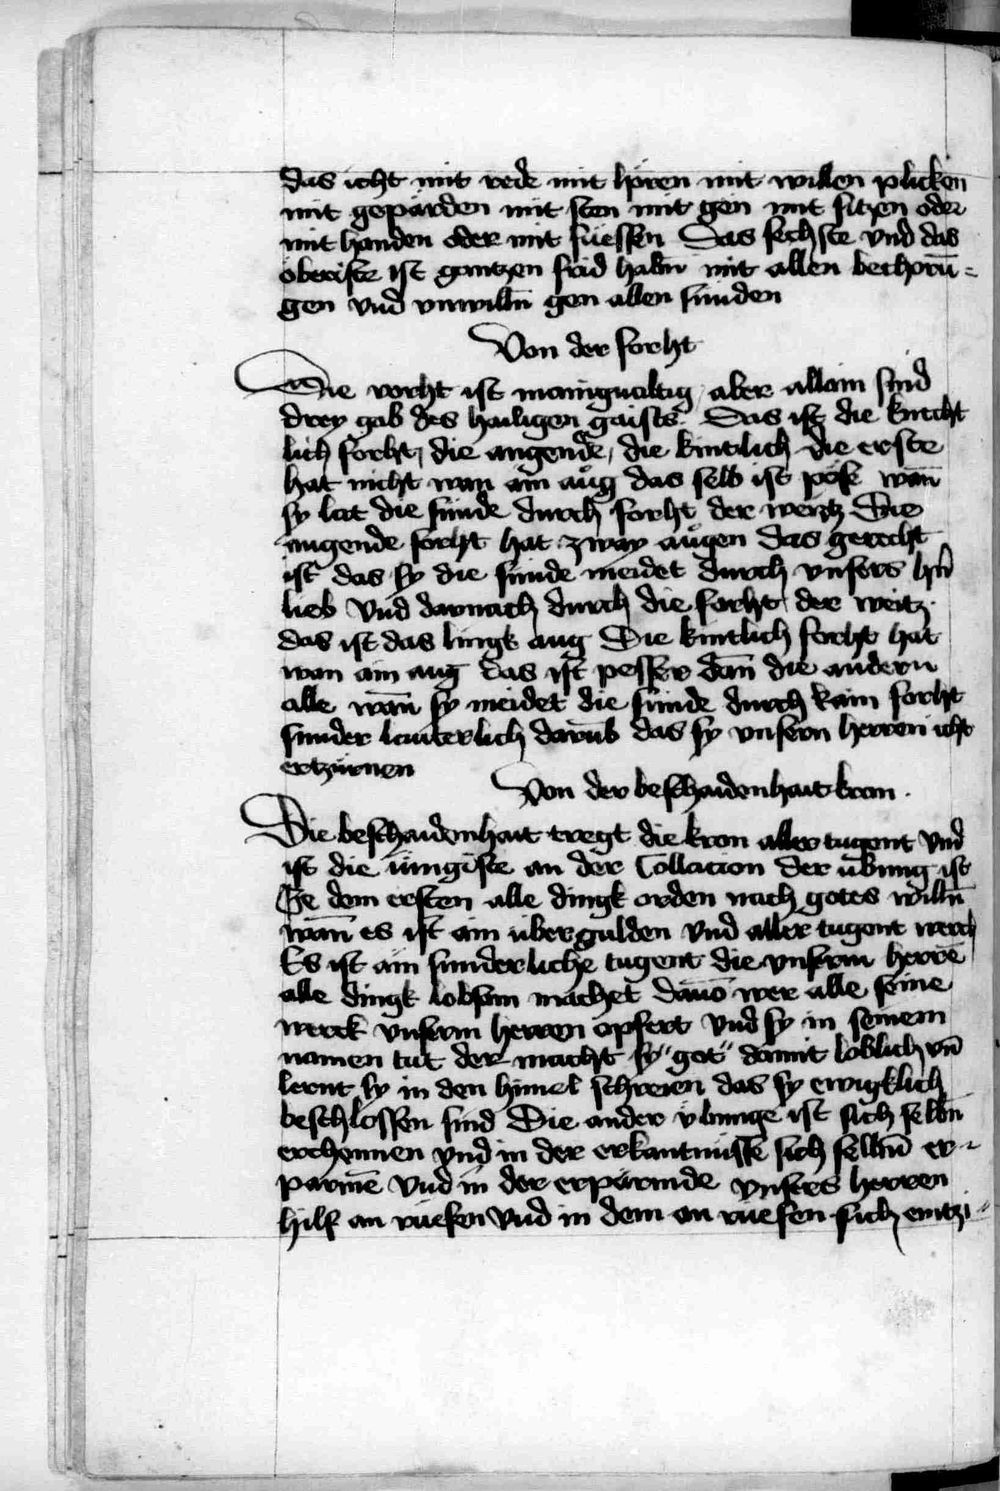 das icht mit rede mit hören mit willen plicken
mit gepärden mit sten mit gen mit sitzen oder
mit handen oder mit füessen Das sechste vnd das
oberiste ist gantzen frid habn̄ mit allen bechorū⸗
gen vnd vnwilln̄ gen allen sünden
Von der forcht
Die vorcht ist manigualtig aber allain sind
drey gab des hailigen gaists Das ist die knecht
lich forcht, die angende, die kintlich die erste
hat nicht wan ain aůg das selb ist pöse wan̄
sy lat die sünde durch forcht der weitz Die
angende forcht hat zway aůgen das gerecht
ist das sy die sünde meidet durch vnsers hn̄
lieb Vnd darnach durch die forcht der weitz
das ist das lingk aug Die kintlich forcht hat
wan ain aug das ist pesser dan̄ die andern
alle wan̄ sy meidet die sünde durch kain forcht
sunder lauterlich darūb das sy vnsern herren icht
ertzürnen
Von der beschaidenhait kron .
Die beschaidenhait tregt die kron aller tugent Vnd
ist die iüngiste an der Collacion der übung ist
Ze dem ersten alle dingk orden nach gotes willn̄
wan̄ es ist ain übergulden vnd aller tugent werch
Es ist ain sunderliche tugent die vnserm herrē
alle dingk lobsam machet dauō wer alle seine
werck vnserm herren opfert Vnd sy in seinem
namen tut der macht sy got damit löblich vn̄
lernt sy in den himel schreien das sy ewigklich
beschlossen sind Die ander v̈bunge ist sich selbn̄
erchennen vnd in der erkantnüsse sich selbn̄ er⸗
parmē Vnd in der erpärmde vnsers herren
hilf an rüefen Vnd in dem an rüefen sich emtzi⸗